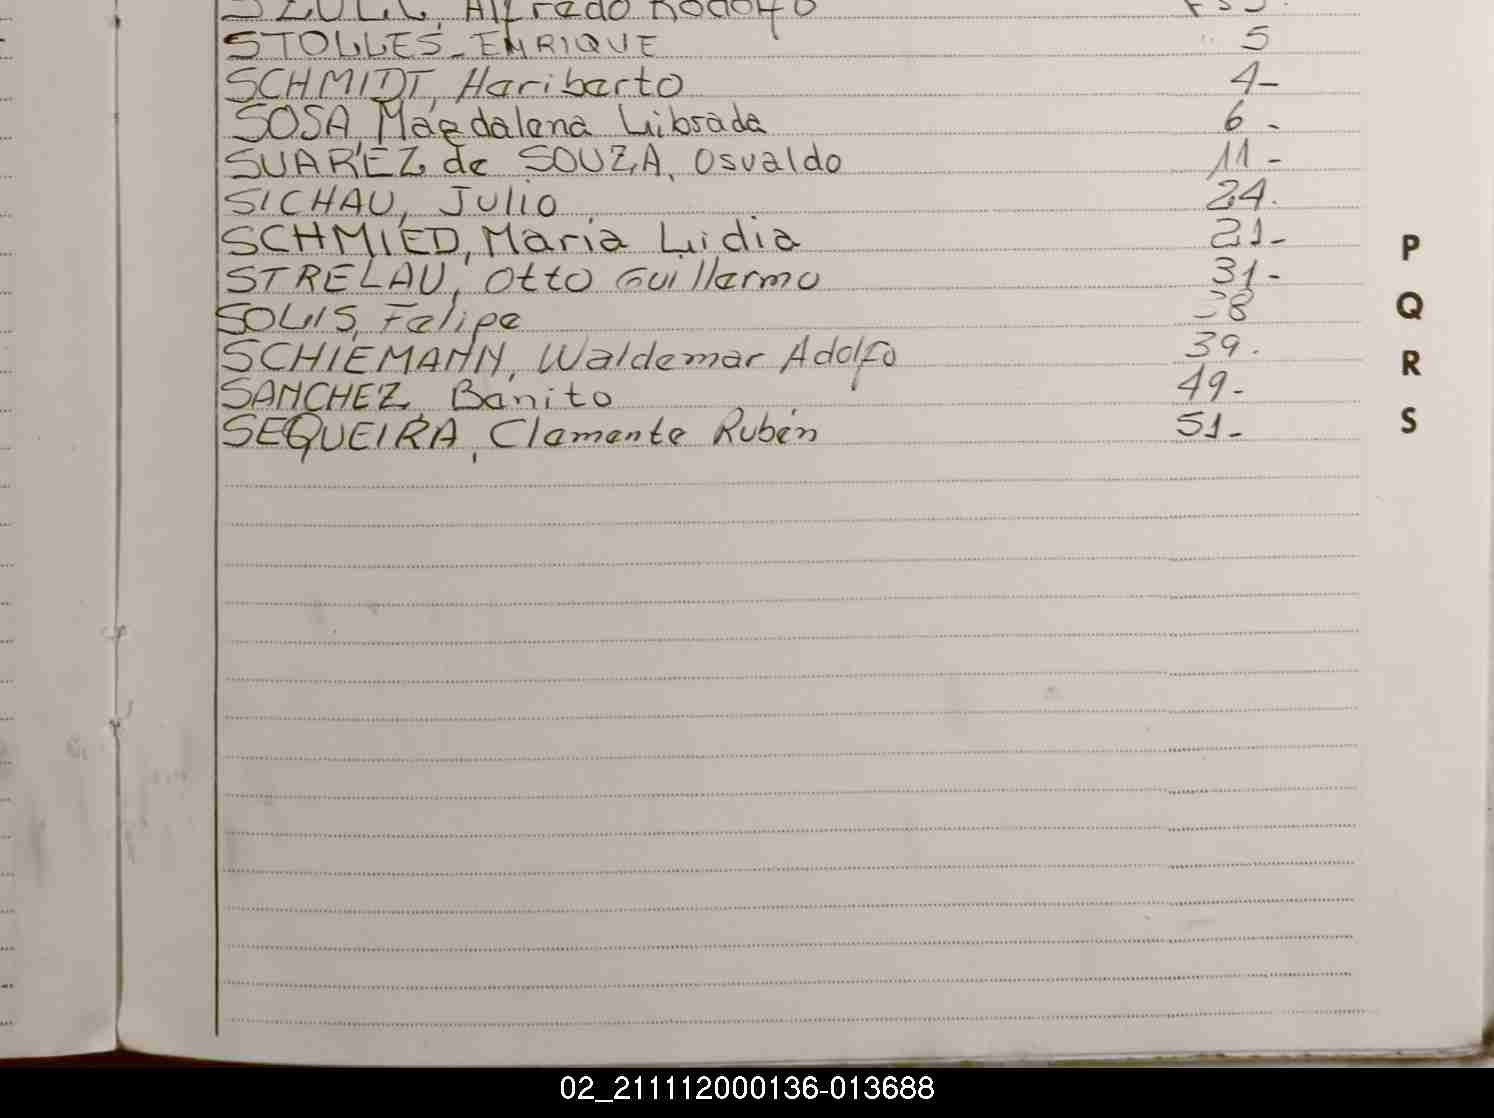 Alfredo Rodolfo
STOLLES - ENRIQUE 5
SCHMIDT, Hariberto 4-
SOSA, Magdalena Librada 6 -
SUAREZ de SOUZA, Osvaldo 11 -
SICHAU, Julio 24.
SCHMIED, Maria Lidia 21-
STRELAU, Otto Guillermo 31-
SOLIS, Felipe 38
SCHIEMANN, Waldemar Adolfo 39.
SANCHEZ, Benito 49-
SEQUEIRA, Clemente Rubén 51-
P
Q
R
S
02_211112000136-013688